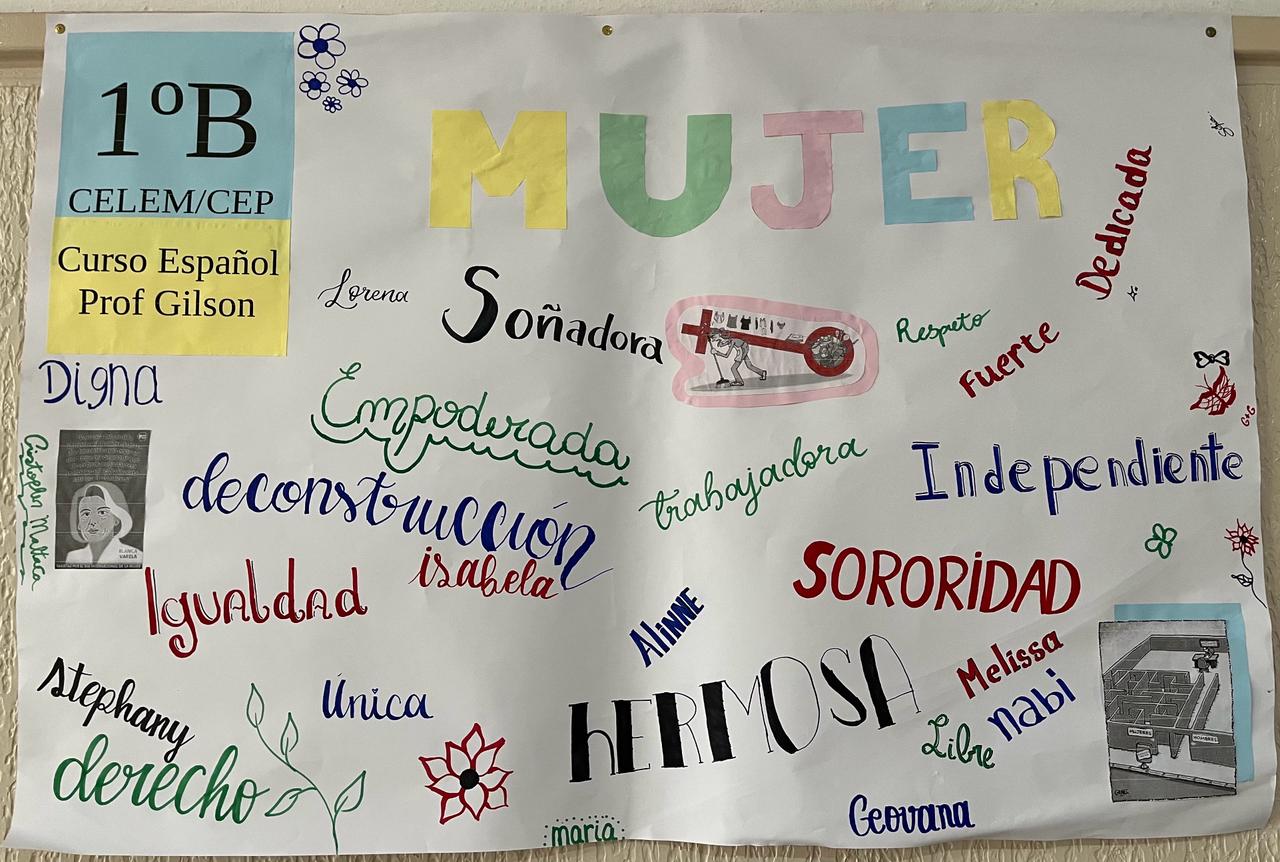 1ºB
CELEM/CEP
Curso Español
Prof Gilson
MUJER
Dedicada
Lorena
Soñadora
Respeto
Fuerte
Digna
Empoderada
trabajadora
Independiente
G+G
deconstrucción
isabela
BLANCA
VARELA
Igualdad
SORORIDAD
Alinne
Melissa
nabi
stephany
Única
HERMOSA
Libre
MUJERES
HOMBRES
derecho
Geovana
maria